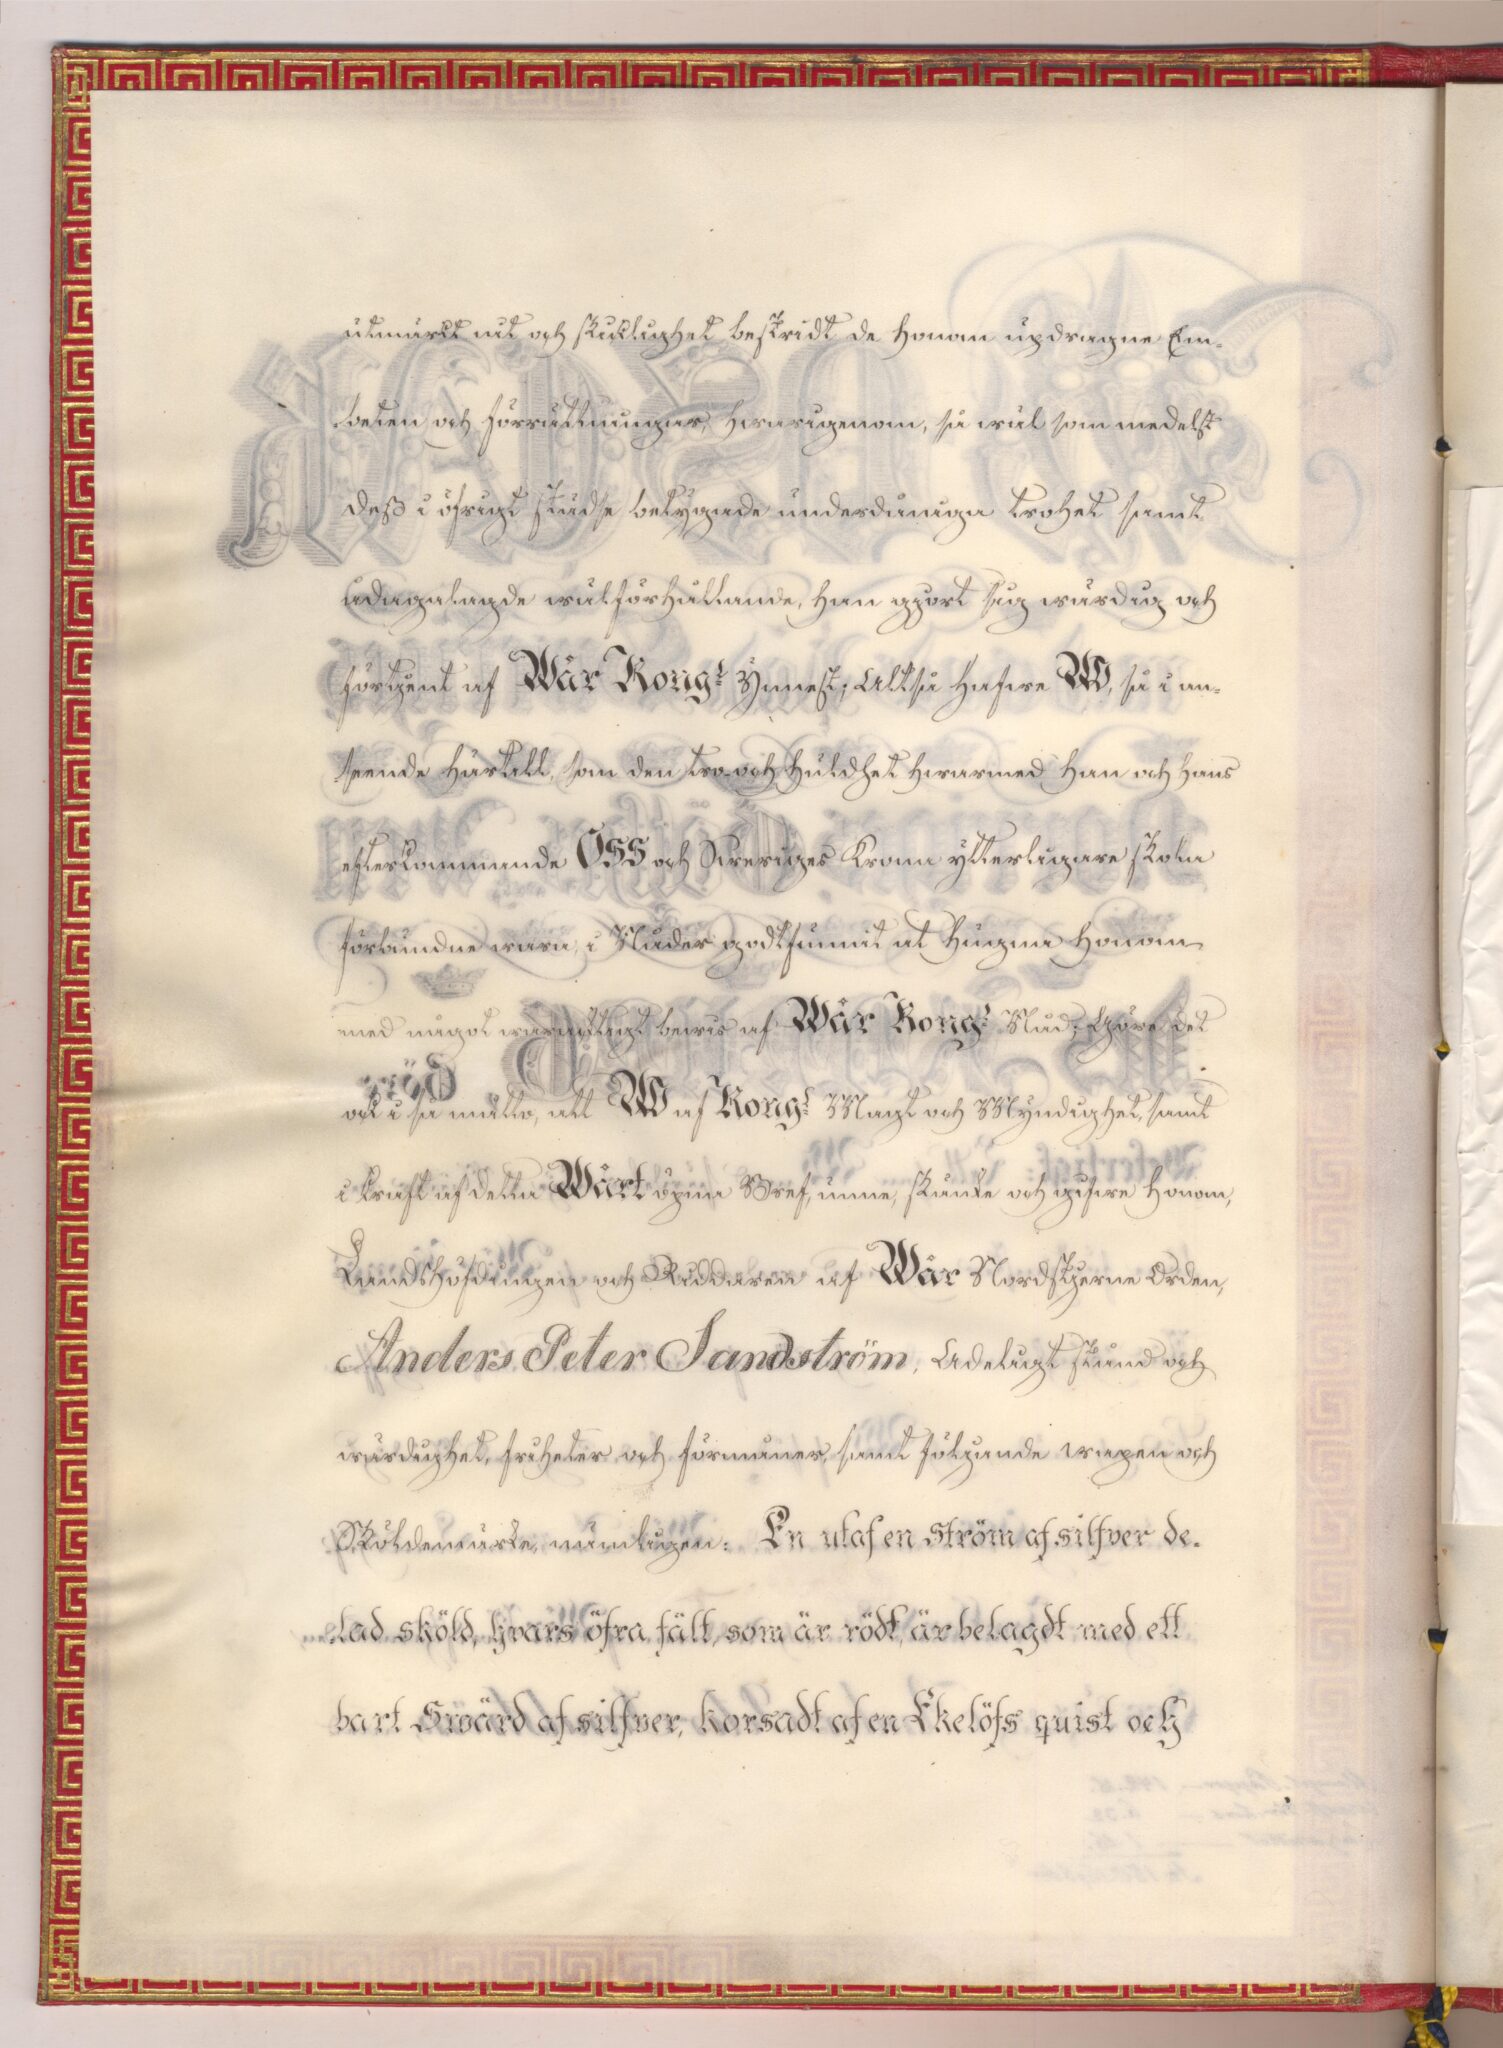 utmärkt nit och skicklighet bestridt de Honom updragne Em-
beten och Förrättningar, hvarigenom, så wäl som medelst
deß i öfrigt städse betygade underdåniga trohet samt
ådagalagde wälförhållande, Han gjort sig wärdig och
förtjent af Wår Kongl Ynnest; Altså hafwe W, så i an-
seende härtill, som den tro- och huldhet hwarmed Han och Hans
efterkommande OSS och Sweriges Krona ytterligare skola
förbundne wara, i Nåder godtfunnit at hugna Honom
med något warachtigt bewis af Wår Kongl Nåd; Göre det
ock i så måtto, att W af Kongl Magt och Myndighet, samt
i kraft af detta Wårt öpna Bref, unne, skänke och gifwe Honom,
Landshöfdingen och Riddaren af Wår Nordstjerne Orden,
Anders Peter Sandström, Adeligt stånd och
wärdighet, friheter och förmåner, samt följande wapen och
Sköldemärke, nämligen: En utaf en ström af silfver de-
lad sköld, hvars öfra fält, som är rödt, är belagdt med ett
bart Swärd af silfver, korsadt af en Ekelöfs quist och